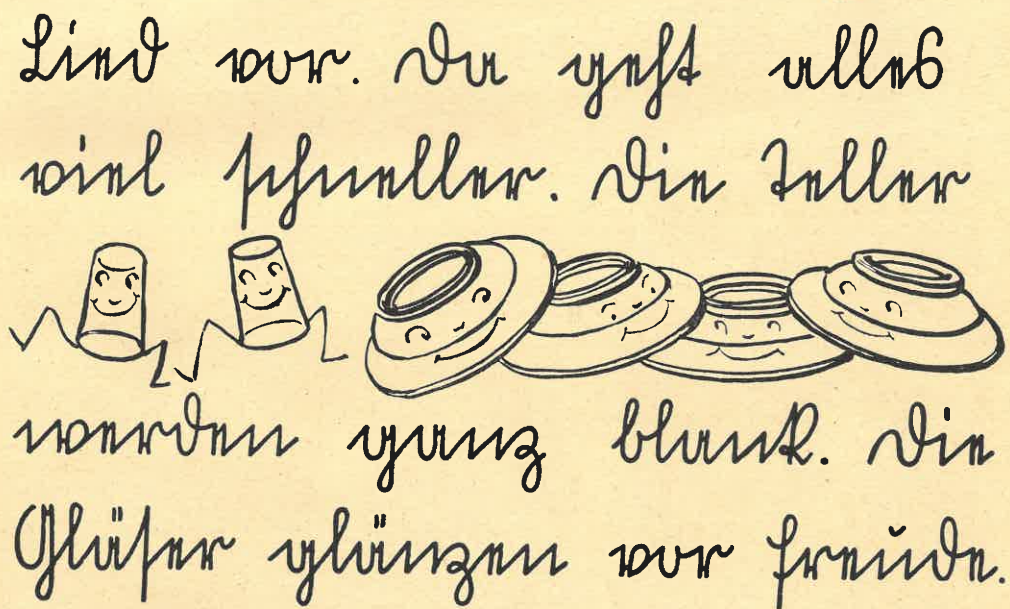 Lied vor. Da geht alles
viel schneller. Die Teller
werden ganz blank. Die
Gläser glänzen vor Freude.